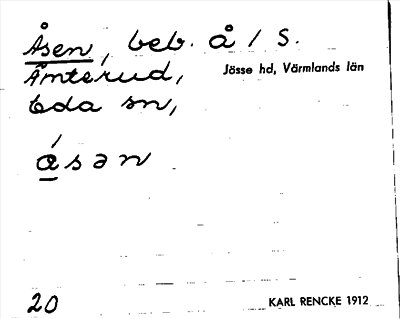 Åsen, beb. å / S.
Åmterud, Jösse hd, Värmlands län
Eda sn,
ásən
20 KARL RENCKE 1912